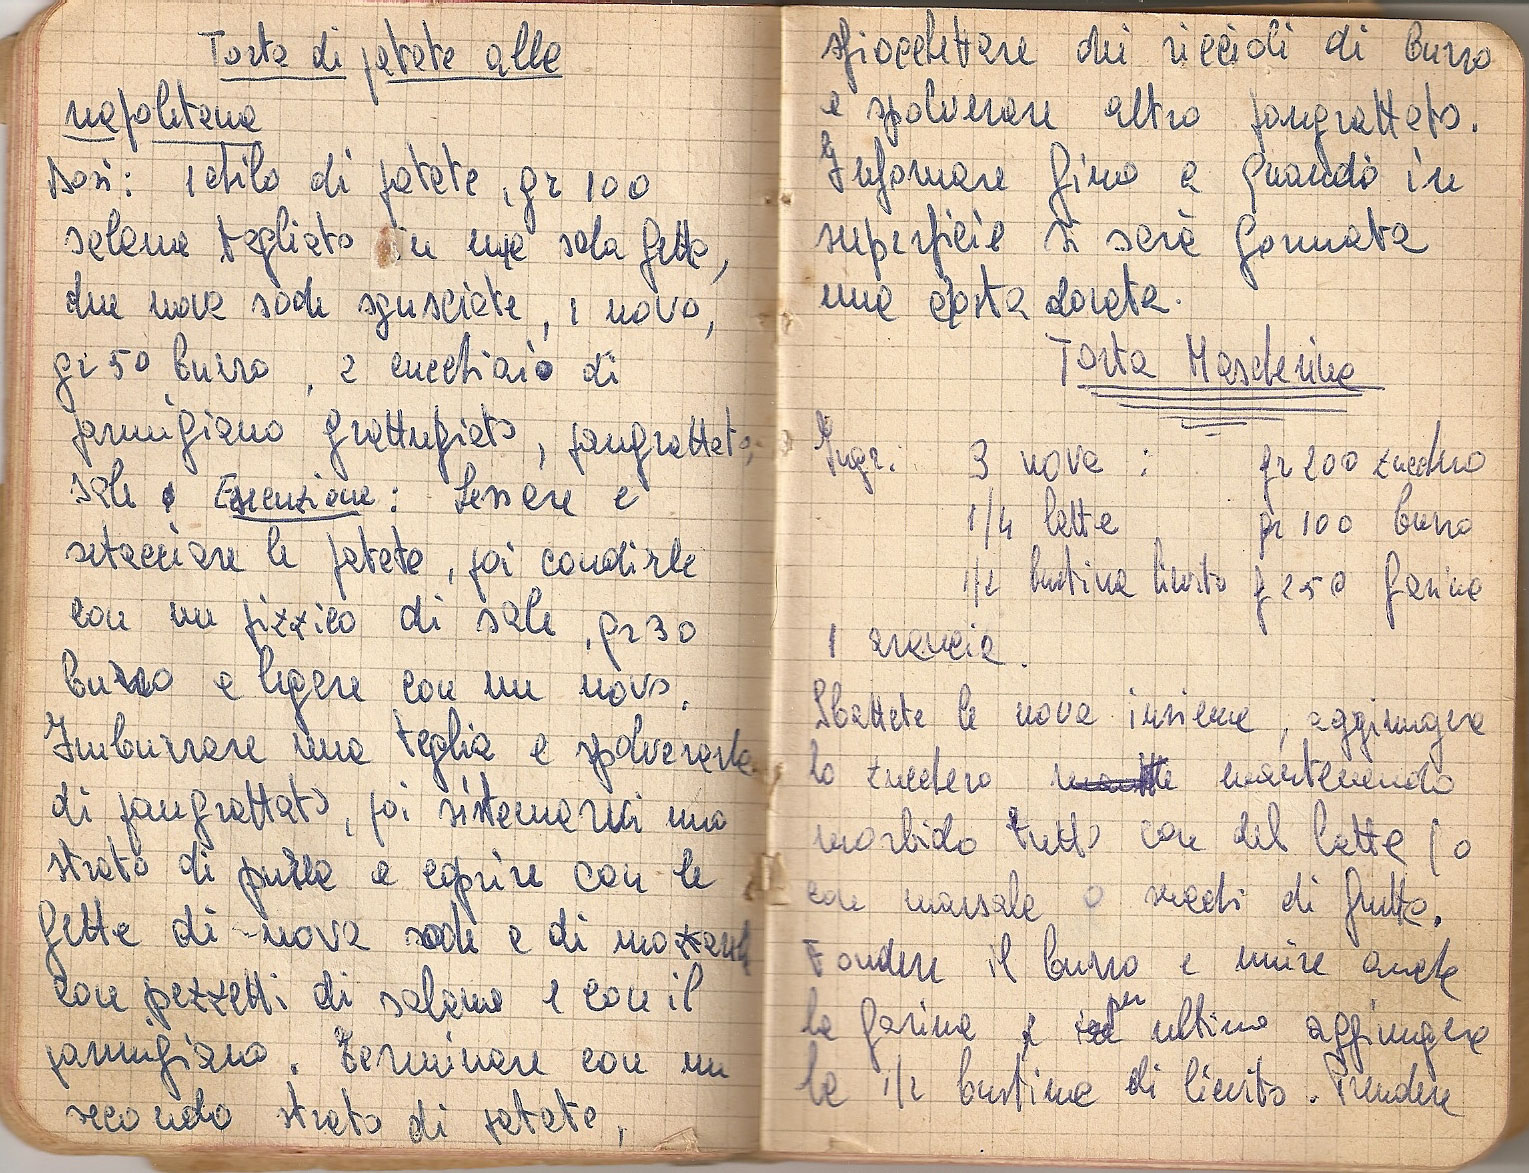 Torta di patate alla
napoletana
Dosi: 1 chilo di patate, gr 100
salame tagliato in una sola fetta,
due uova sode sgusciate, 1 uovo,
gr 50 burro, 2 cucchiaio di
parmigiano grattugiato, pangrattato,
sale. Esecuzione: Lessare e
setacciare le patate, poi condirle
con un pizzico di sale, gr 30
burro e legare con un uovo.
Imburrare una teglia e spolverarla
di pangrattato, poi sistemarvi uno
strato di purea e coprire con le
fette di uova sode e di
con pezzetti di salame e con il
parmigiano. Terminare con un
secondo strato di patate,
sfioccettare dei riccioli di burro
e spolverare altro pangrattato.
Infornare fino a quando in
superficie si sarà formata
una crosta dorata.
Torta Mascherina
Ingr: 3 uova : gr 200 zucchero
1/4 latte gr 100 burro
1/2 bustina lievito g 250 farina
1 arancia.
Sbattete le uova insieme, aggiungere
lo zucchero mantenendo
morbido tutto con del latte (o
con marsala o succhi di frutta.
Fondere il burro e unire anche
la farina e per ultimo aggiungere
la 1/2 bustina di lievito. Prendere